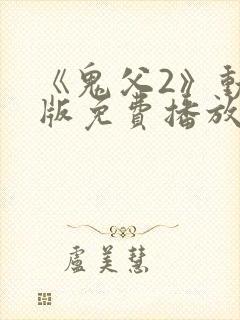 《鬼父2》動
版免費播放
盧美慧